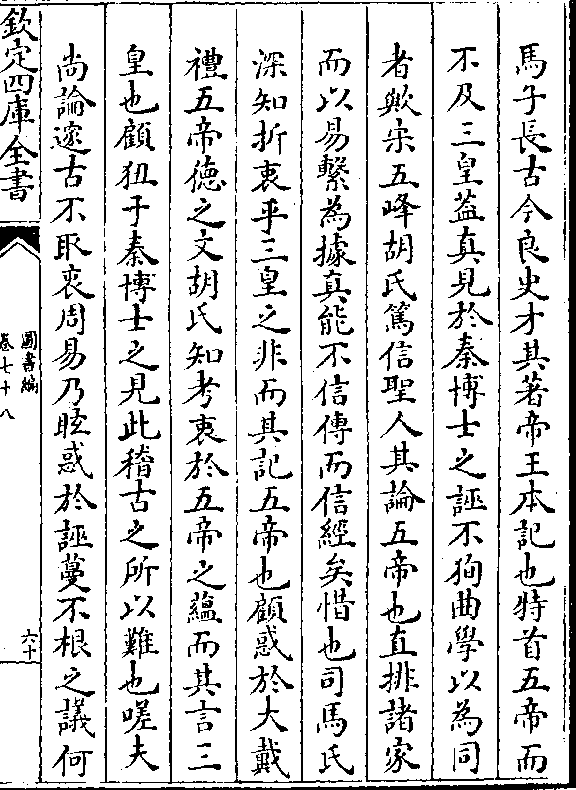 馬子長古今良史才其著帝王本記也特首五帝而
不及三皇葢真見於秦博士之誣不狥曲學以為同
者歟宋五峰胡氏篤信聖人其論五帝也直排諸家
而以易繫為據真能不信傳而信經矣惜也司馬氏
深知折衷乎三皇之非而其記五帝也顧惑於大戴
禮五帝德之文胡氏知考衷於五帝之蘊而其言三
皇也顧狃于秦博士之見此稽古之所以難也嗟夫
尚論邃古不取衷周易乃眩惑於誣蔓不根之議何
欽定四庫全書
圖書編
卷七十八
六十